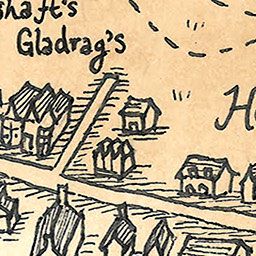 shaft's
Gladrag's
H